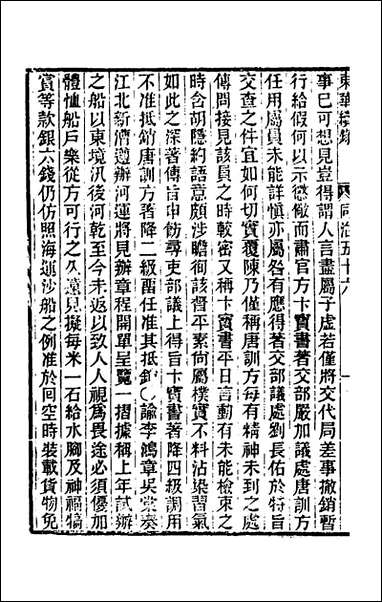 東華續錄 同治五十六
事已可想見豈得謂人言盡屬子虛若僅將交代局差事撤銷暫
行給假何以示懲儆而肅官方卞寶書著交部嚴加議處唐訓方
任用屬員未能詳慎亦屬咎有應得著交部議處劉長佑於特旨
交查之件宜如何切實覆陳乃僅稱唐訓方每有精神未到之處
傳問接見該員之時較密又稱卞寶書平日言動有未能檢束之
時含胡隱約語意頗涉瞻徇該督平素向屬樸實不料沾染習氣
如此之深著傳旨申飭尋吏部議上得旨卞寶書著降四級調用
不准抵銷唐訓方著降二級留任准其抵銷〇諭李鴻章吳棠奏
江北新漕遵辦河運將見辦章程開單呈覽一摺據稱上年試辦
之船以東境汛後河乾至今未返以致人人視為畏途必須優加
體恤船戶樂從方可行之久遠見擬每米一石給水腳及神福犒
賞等款銀六錢仍仿照海運沙船之例准於回空時裝載貨物免